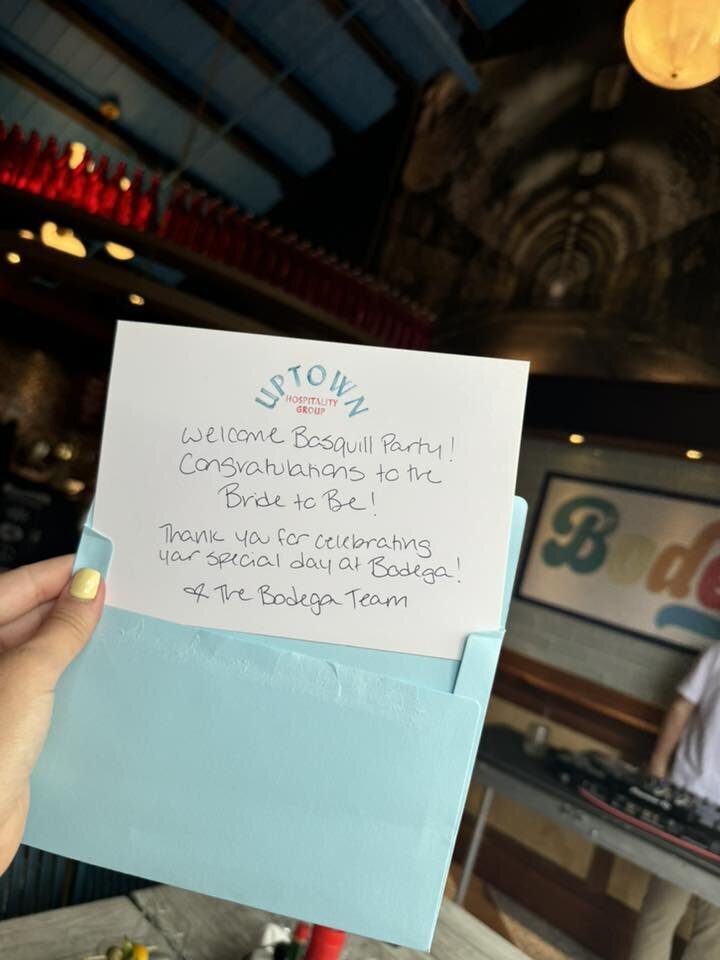 UPTOWN
HOSPITALITY
GROUP
Welcome Basquill Party!
Congratulations to the
Bride to Be!
Thank you for celebrating
your special day at Bodega!
The Bodega Team
Bode